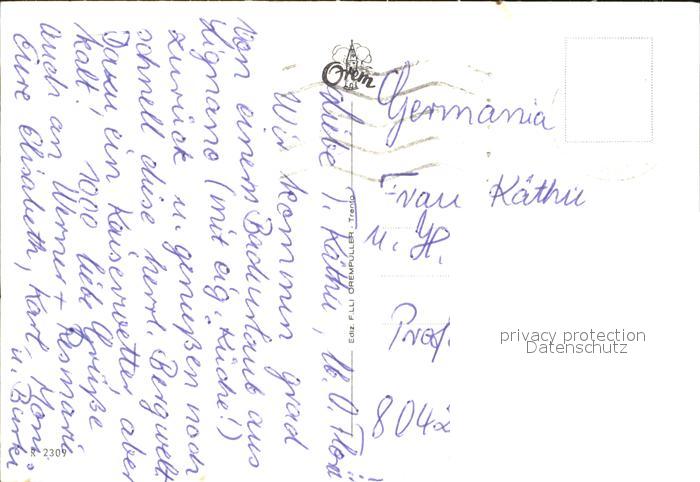 Liebe T. Käthi, lb. O. Flori!
Wir kommen grad
von einem Badeurlaub aus
Lignano (mit eig. Küche!)
zurück u. genießen noch
schnell diese herrl. Bergwelt.
Dazu ein Kaiserwetter, aber
kalt! 1000 liebe Grüße
auch an Werner + Rosmarie
Eure Elisabeth, Karl, Moni
u. Burki
Orem
Ediz. F.LLI OREMPULLER - Trento
R 2309
Germania
Frau Käthi
u. H.
Prof.
804
privacy protection
Datenschutz